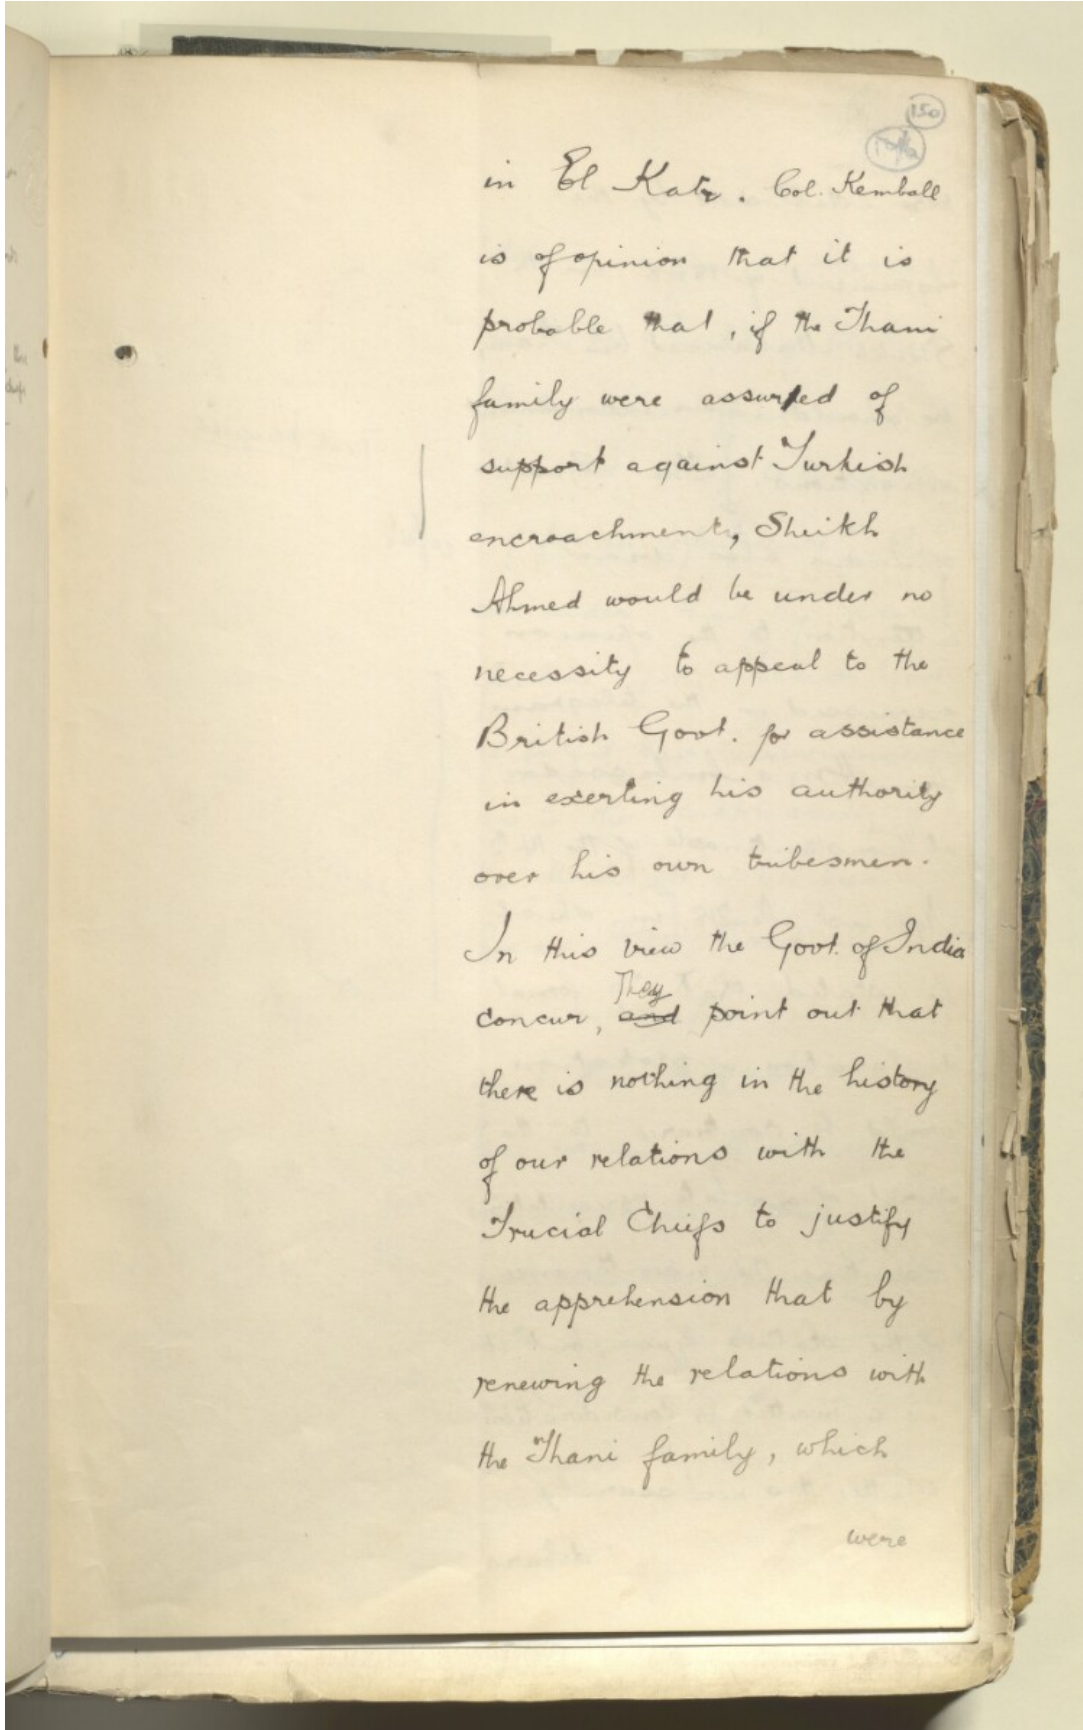 150
in El Katr. Col. Kemball
is of opinion that it is
probable that, if the Thani
family were assured of
support against Turkish
encroachments, Sheikh
Ahmed would be under no
necessity to appeal to the
British Govt. for assistance
in exerting his authority
over his own tribesmen.
In this view the Govt. of India
They
concur, and point out that
there is nothing in the history
of our relations with the
Trucial Chiefs to justify
the apprehension that by
renewing the relations with
the Thani family, which
were